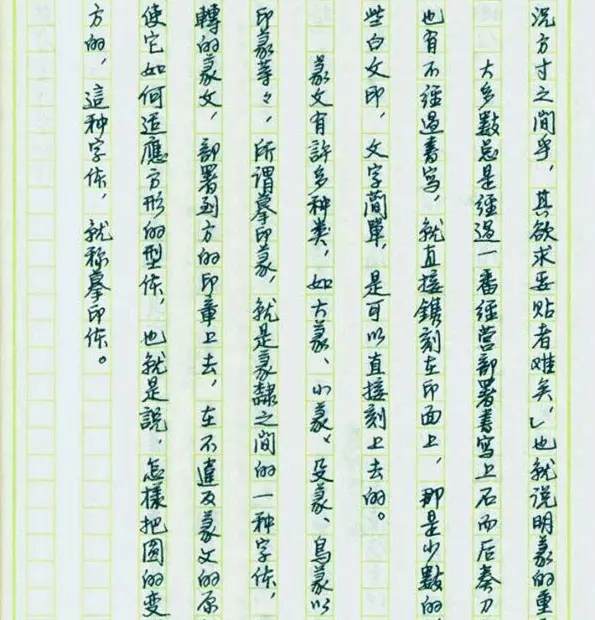 况方寸之間乎，其欲求妥贴者难矣，」也就说明篆的重
大多數总是經過一番經营部署書写上石而后奏刀
也有不經過書写，就直接鐫刻在印面上，那是少數的，
些白文印，文字简單，是可以直接刻上去的。
篆文有許多种类，如大篆、小篆、殳篆、鳥篆以
印篆等々，所谓摹印篆，就是篆隸之間的一种字体，
轉的篆文，部署到方的印章上去，在不違反篆文的原
使它如何适應方形的型体，也就是説，怎樣把圆的变
方的，這种字体，就称摹印体。